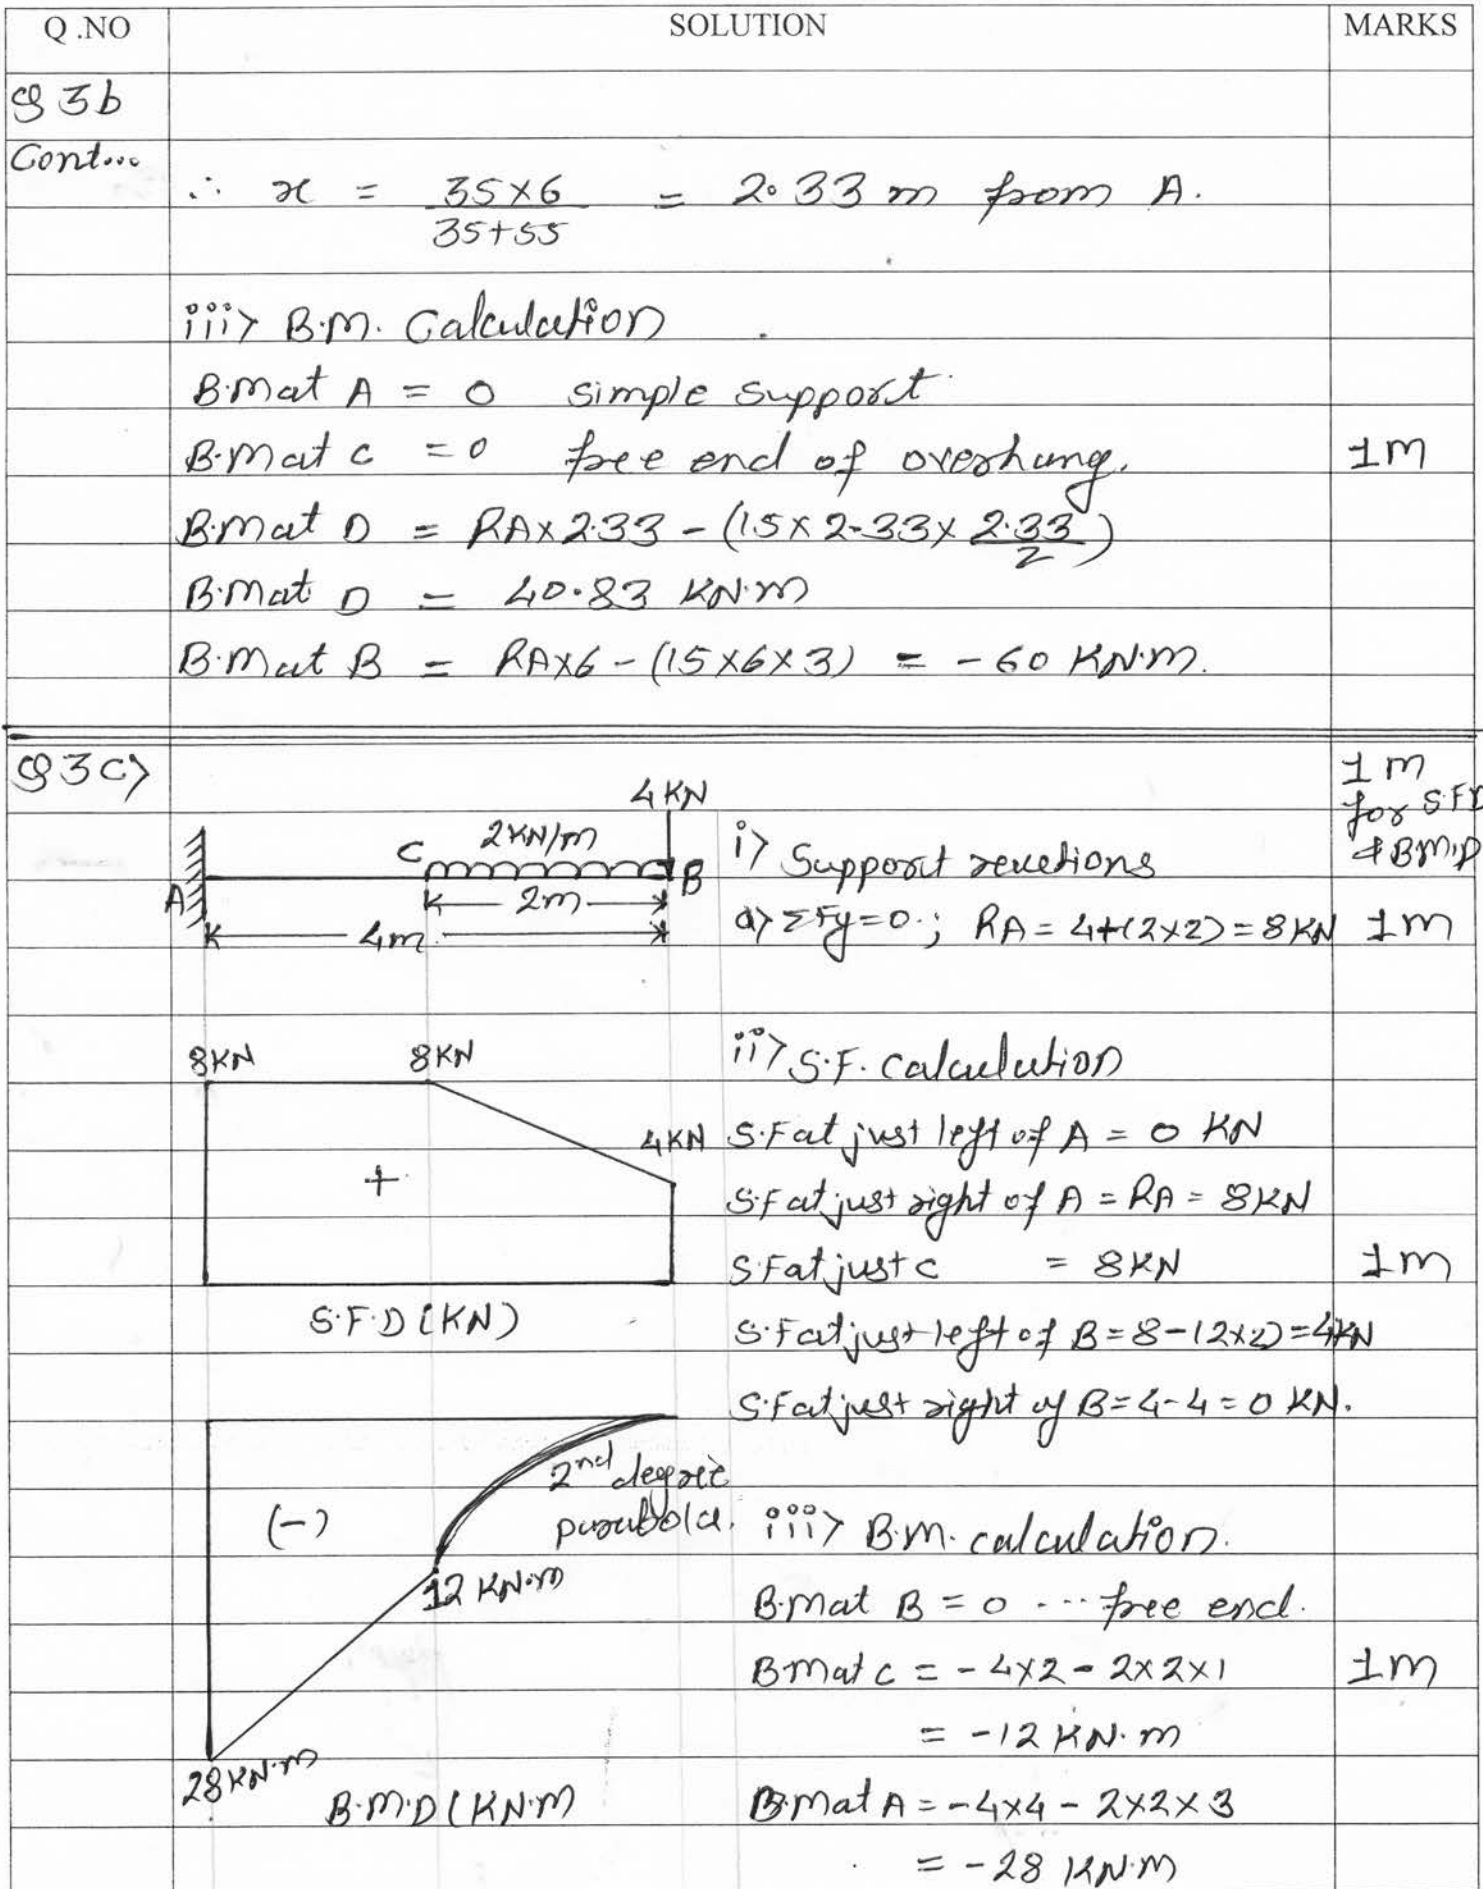 Q .NO SOLUTION MARKS
Q 3b
Cont...
∴ x = 35×6 / 35+55 = 2.33 m from A.
iii> B.M. Calculation
B.M at A = 0 simple support
B.M at C = 0 free end of overhung. 1M
B.M at D = RA×2.33 - (15×2.33×2.33/2)
B.M at D = 40.83 KN.m
B.M at B = RA×6 - (15×6×3) = -60 KN.M.
Q 3 C>
1 m
for S.F.D
& BM.D
4 KN
2KN/m
C
A
B
2m
4m
i> Support reactions
a> ΣFy=0.; RA = 4+(2×2) = 8 KN 1M
8KN 8KN
4KN
+
S.F.D (KN)
ii> S.F. calculation
S.F at just left of A = 0 KN
S.F at just right of A = RA = 8KN
S.F at just C = 8KN 1M
S.F at just left of B = 8-(2×2) = 4KN
S.F at just right of B = 4-4 = 0 KN.
(-)
2nd degree
parabola.
12 KN.m
28 KN.m
B.M.D (KN.M
iii> B.M. calculation.
B.M at B = 0 ... free end.
B.M at C = -4×2 - 2×2×1 1M
= -12 KN.m
B.M at A = -4×4 - 2×2×3
= -28 KN.M